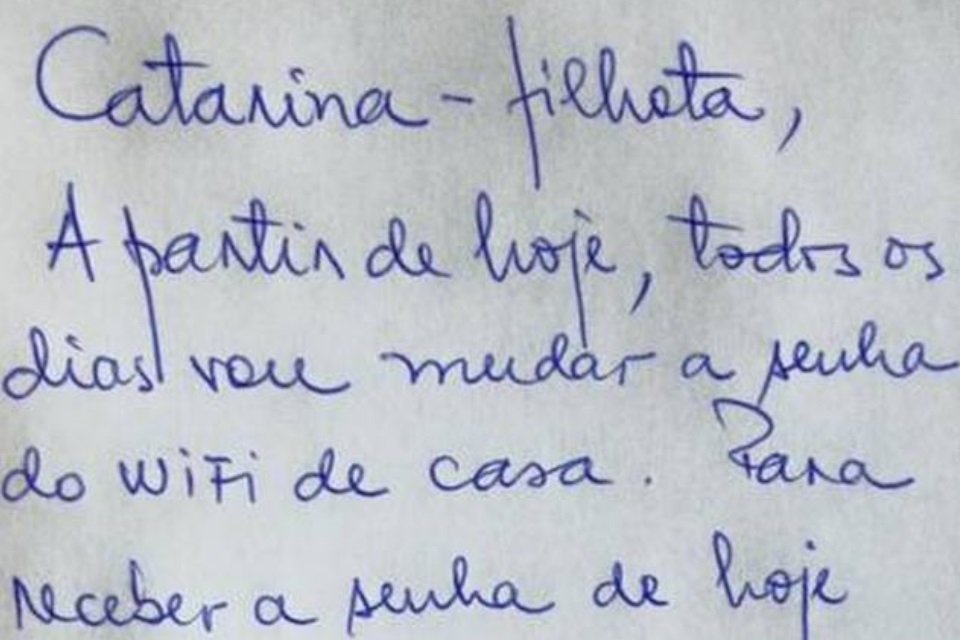 Catarina - filhota,
A partir de hoje, todos os
dias vou mudar a senha
do WiFi de casa. Para
receber a senha de hoje